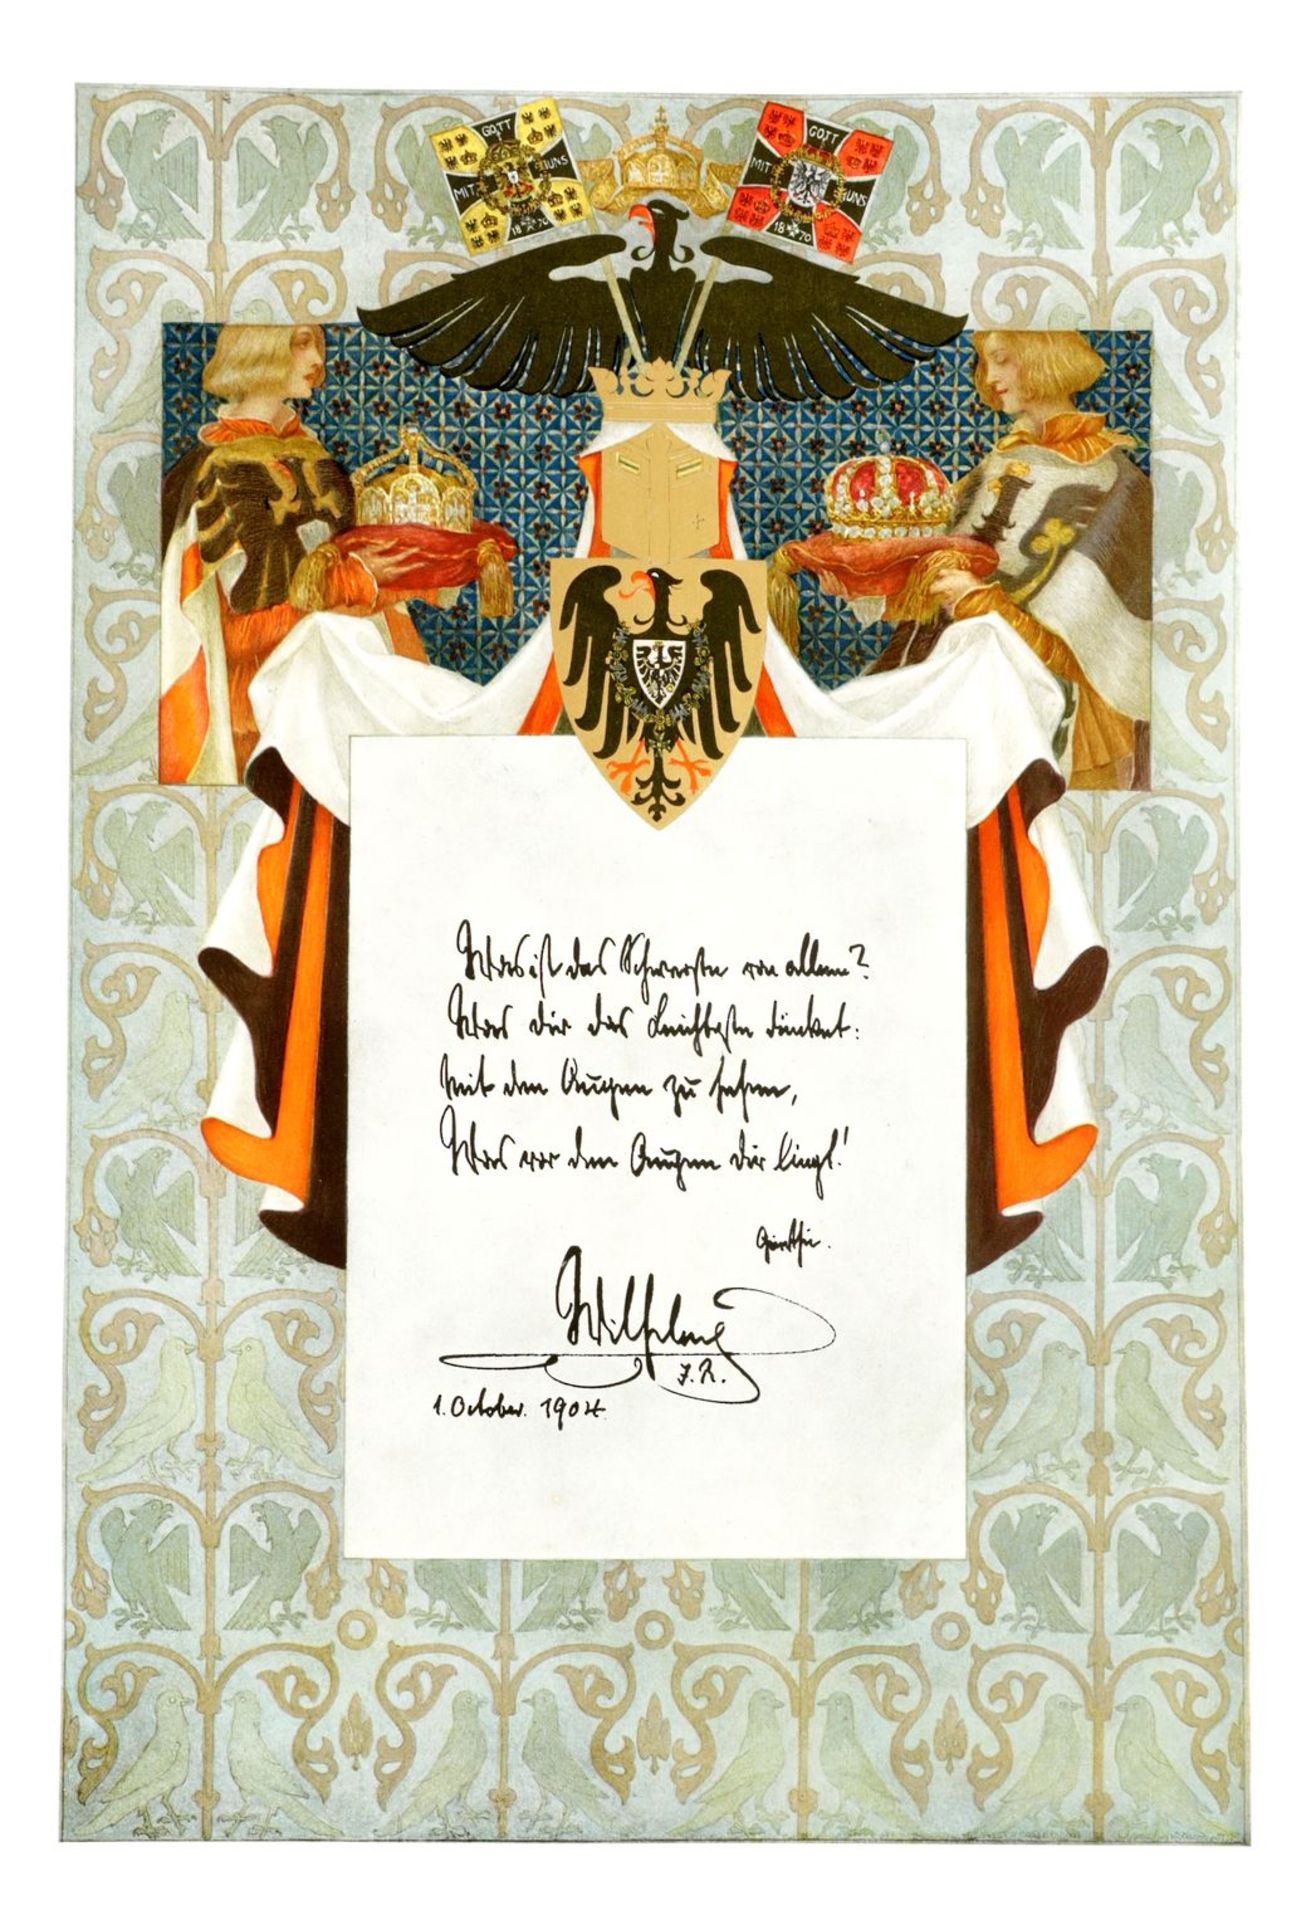 GOTT
MIT UNS
1870
GOTT
MIT UNS
1870
Was ist das Schwerste von allem?
Was dir das Leichteste dünket:
Mit den Augen zu sehen,
Was vor den Augen dir liegt!
Goethe.
Wilhelm
I. R.
1. October. 1904